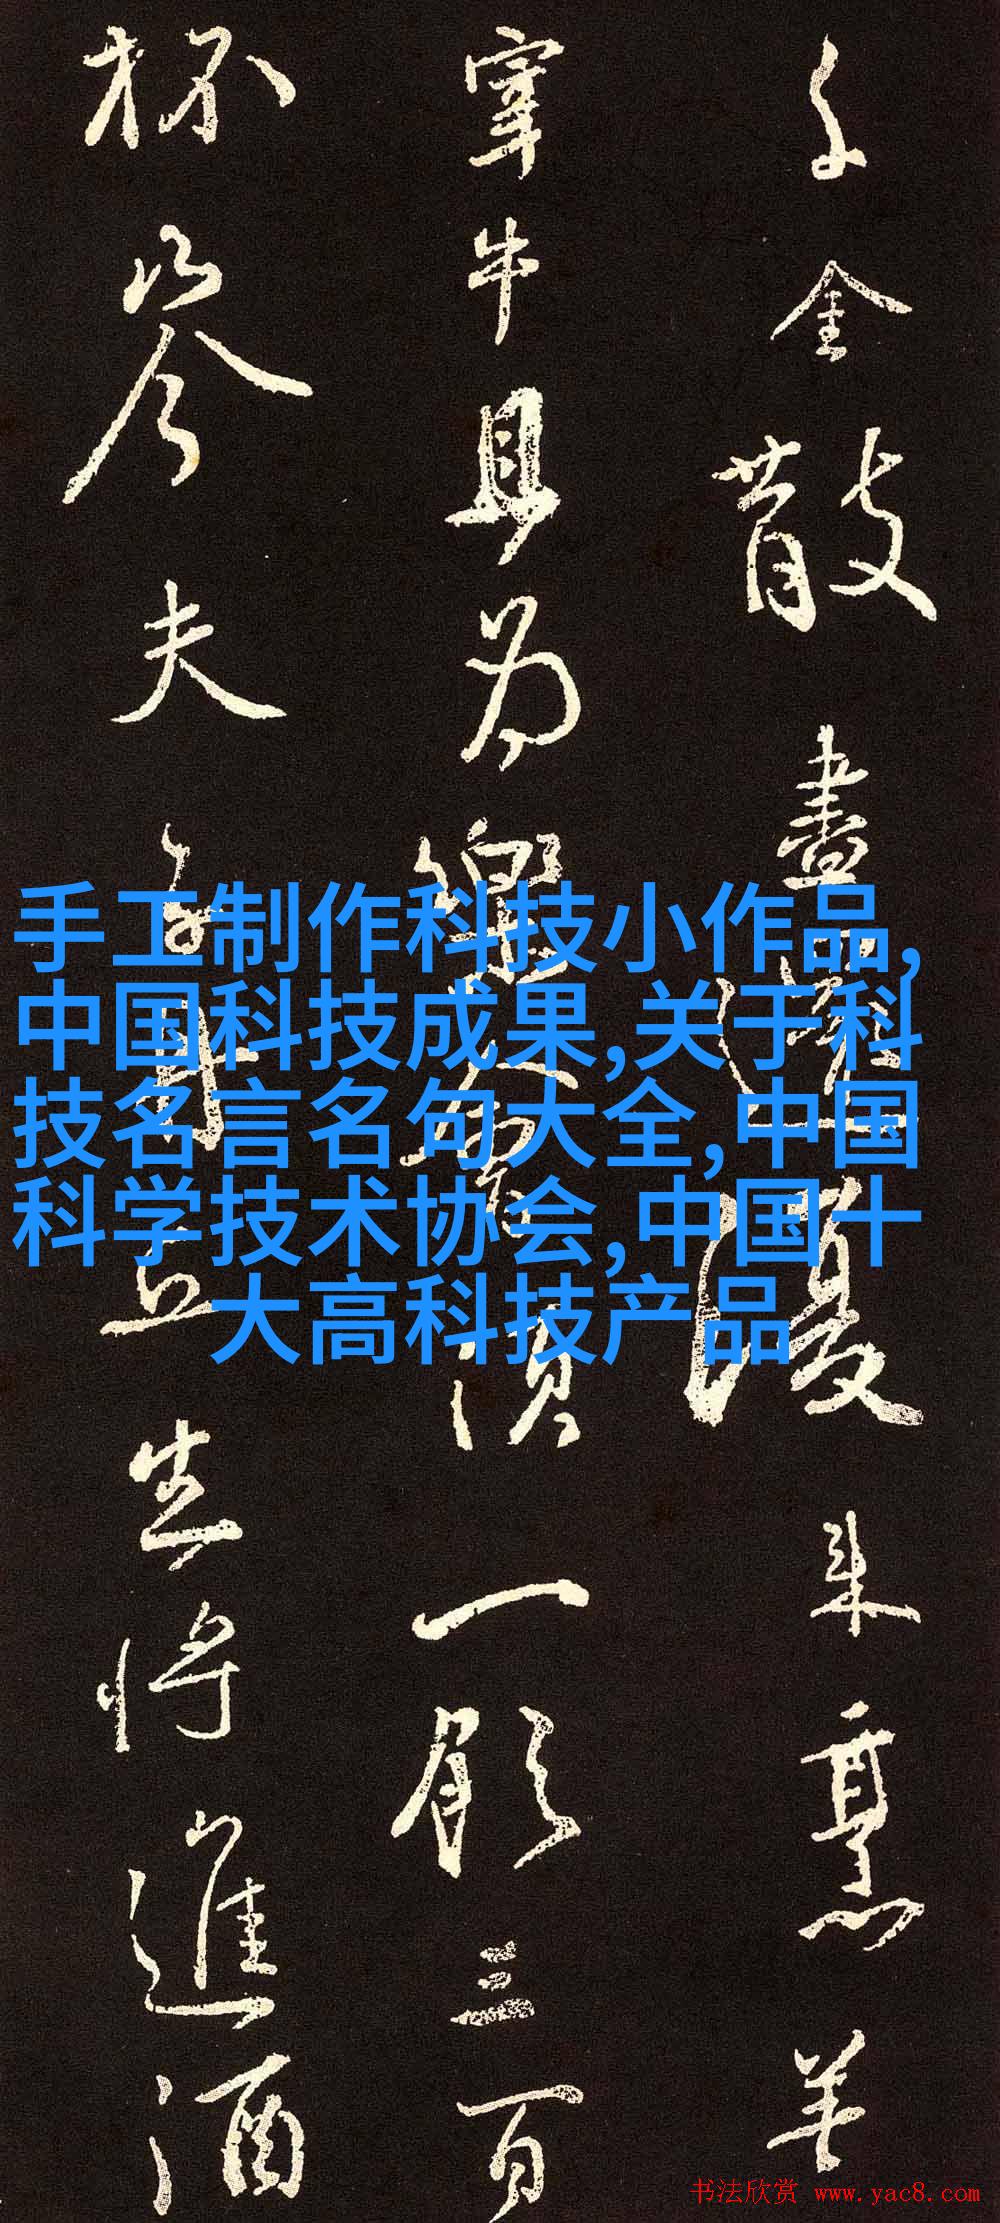 千金散盡還復来烹羊
宰牛且為樂會須一飲三百
杯岑夫子丹丘生将進酒
手工制作科技小作品,
中国科技成果,关于科
技名言名句大全,中国
科学技术协会,中国十
大高科技产品
书法欣赏 www.yac8.com